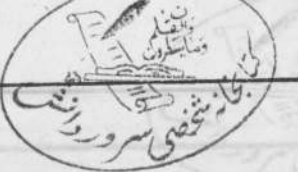 ن
والقلم
وما یسطرون
کتابخانه شخصی سرور دانش